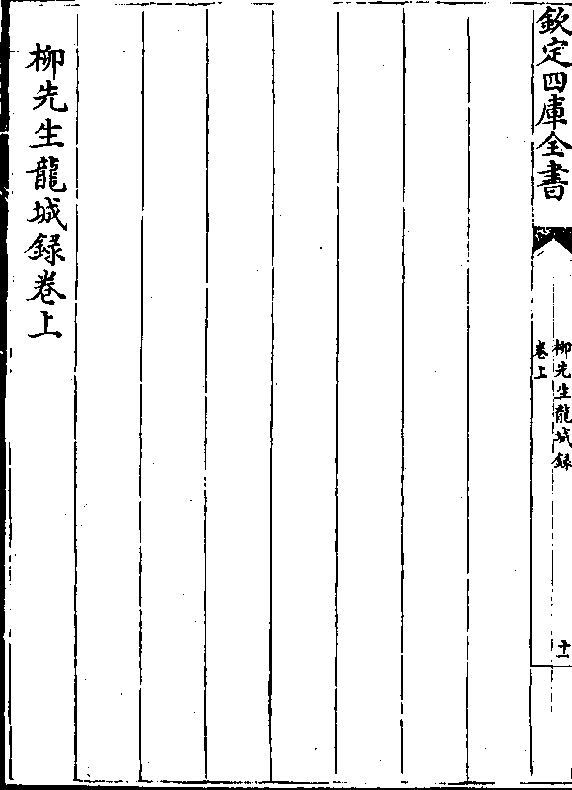 欽定四庫全書
柳先生龍城録
卷上
十一
柳先生龍城録卷上